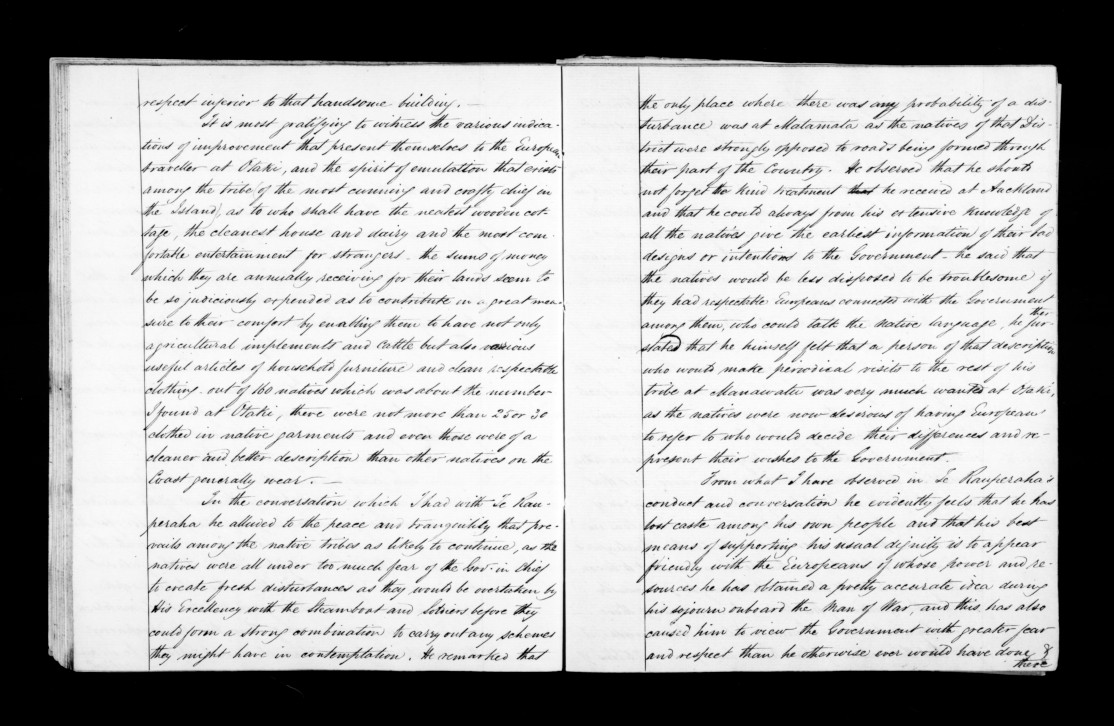 respect inferior to that handsome building. —
It is most gratifying to witness the various indica-
tions of improvement that present themselves to the European
traveller at Otaki, and the spirit of emulation that exists
among the tribe of the most cunning and crafty chief in
the Island, as to who shall have the neatest wooden cot-
tage, the cleanest house and dairy and the most com-
fortable entertainment for strangers - the sums of money
which they are annually receiving for their lands seem to
be so judiciously expended as to contribute in a great mea-
sure to their comfort by enabling them to have not only
agricultural implements and cattle but also various
useful articles of household furniture and clean respectable
clothing. out of 160 natives which was about the number
I found at Otaki, there were not more than 25 or 30
clothed in native garments and even those were of a
cleaner and better description than other natives on the
Coast generally wear. —
In the conversation which I had with Te Rau-
peraha he alluded to the peace and tranquility that pre-
vails among the native tribes as likely to continue, as the
natives were all under too much fear of the Gov-in Chief
to create fresh disturbances as they would be overtaken by
His Excellency with the Steamboat and soldiers before they
could form a strong combination to carry out any schemes
they might have in contemplation. He remarked that
the only place where there was any probability of a dis-
turbance was at Matamata as the natives of that Dis-
trict were strongly opposed to roads being formed through
their part of the Country. He observed that he should
not forget the kind treatment that he received at Auckland
and that he could always from his extensive knowledge of
all the natives give the earliest information of their bad
designs or intentions to the Government - he said that
the natives would be less disposed to be troublesome if
they had respectable Europeans connected with the Government
among them, who could talk the native language, he fur-
ther
stated that he himself felt that a person of that description
who would make periodical visits to the rest of his
tribe at Manawatu was very much wanted at Otaki,
as the natives were now desirous of having Europeans
to refer to who would decide their differences and re-
present their wishes to the Government.
From what I have observed in Te Rauperaha's
conduct and conversation he evidently feels that he has
lost caste among his own people and that his best
means of supporting his usual dignity is to appear
friendly with the Europeans of whose power and re-
sources he has obtained a pretty accurate idea during
his sojourn onboard the Man of War, and this has also
caused him to view the Government with greater fear
and respect than he otherwise ever would have done &
there